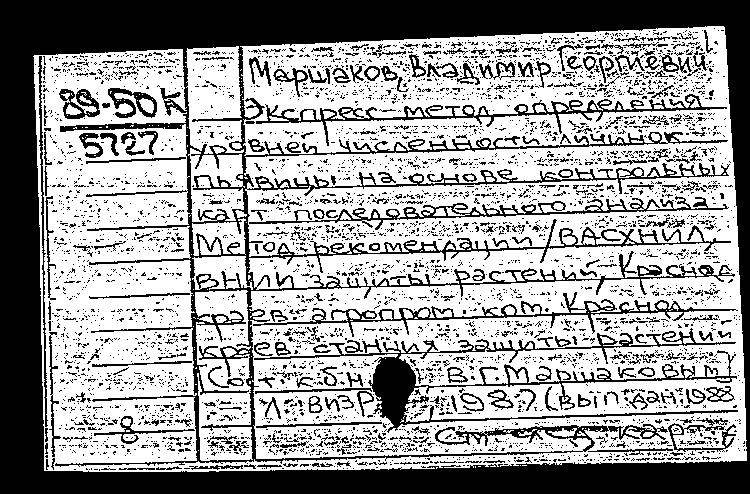 Маршаков, Владимир Георгиевич.
89-50к
5727
Экспресс-метод определения
уровней численности личинок
пьявицы на основе контрольных
карт последовательного анализа:
Метод. рекомендации / ВАСХНИЛ,
ВНИИ защиты растений, Краснод.
краев. агропром. ком., Краснод.
краев. станция защиты растений
[Сост. к.б.н. В.Г. Маршаковым]
Л.: ВИЗР, 1987 (Вып. дан. 1988
См. след. карт.
8